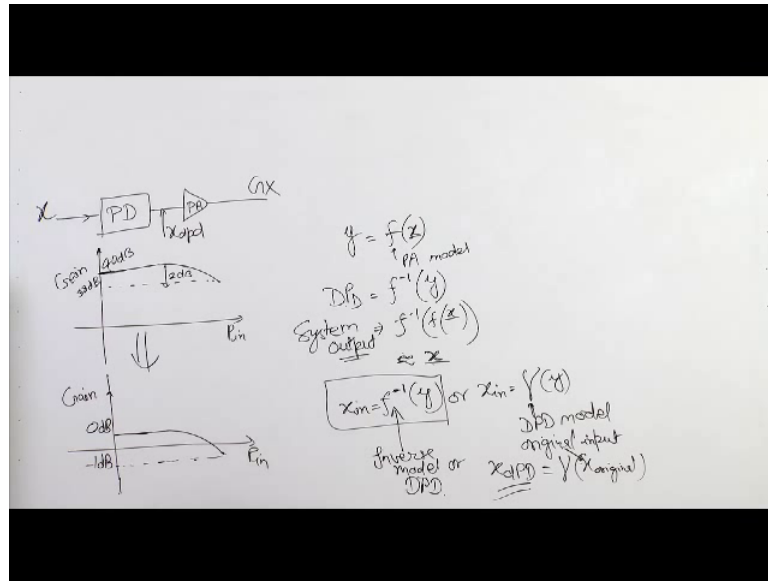 x
PD
PA
Gx
xdpd
Gain
40dB
38dB
2dB
Pin
Gain
0dB
-1dB
Pin
y = f(x)
PA model
DPD = f⁻¹(y)
System output ⇒ f⁻¹(f(x))
≈ x
xin = f⁻¹(y) or xin = γ(y)
Inverse model or DPD
DPD model
original input
xDPD = γ(xoriginal)